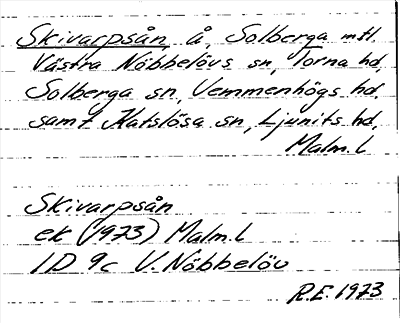 Skivarpsån, å, Solberga mtl.
Västra Nöbbelövs sn, Torna hd,
Solberga sn, Vemmenhögs hd.
samt Katslösa sn, Ljunits hd,
Malm. l
Skivarpsån
ek (1973) Malm. l
1D 9c V. Nöbbelöv
R.E. 1973